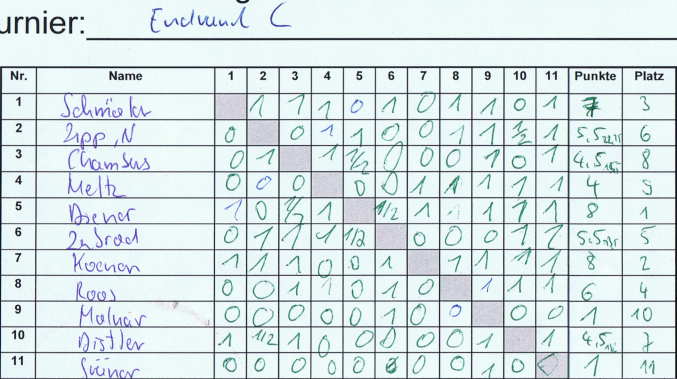 urnier: Endrund C
Nr. Name 1 2 3 4 5 6 7 8 9 10 11 Punkte Platz
1 1 1 1 0 1 0 1 1 0 1 7 3
2 Zipp, N 0 0 1 1 0 0 1 1 1/2 1 5,5 6
3 0 1 1 1/2 0 0 0 1 0 1 4,5 8
4 Meltz 0 0 0 0 0 1 1 1 1 1 4 9
5 1 0 1/2 1 1/2 1 1 1 1 1 8 1
6 0 1 1 1 1/2 0 0 0 1 1 5,5 5
7 Koenen 1 1 1 0 0 1 1 1 1 1 8 2
8 Roos 0 0 1 1 0 1 0 1 1 1 6 4
9 Molnár 0 0 0 0 0 1 0 0 0 0 1 10
10 Distler 1 1/2 1 0 0 0 0 0 1 1 4,5 7
11 0 0 0 0 0 0 0 0 1 0 1 11